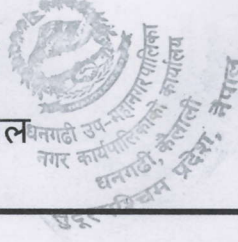 ल
धनगढी उप-महानगरपालिका
नगर कार्यपालिकाको कार्यालय
धनगढी, कैलाली
सुदूरपश्चिम प्रदेश, नेपाल